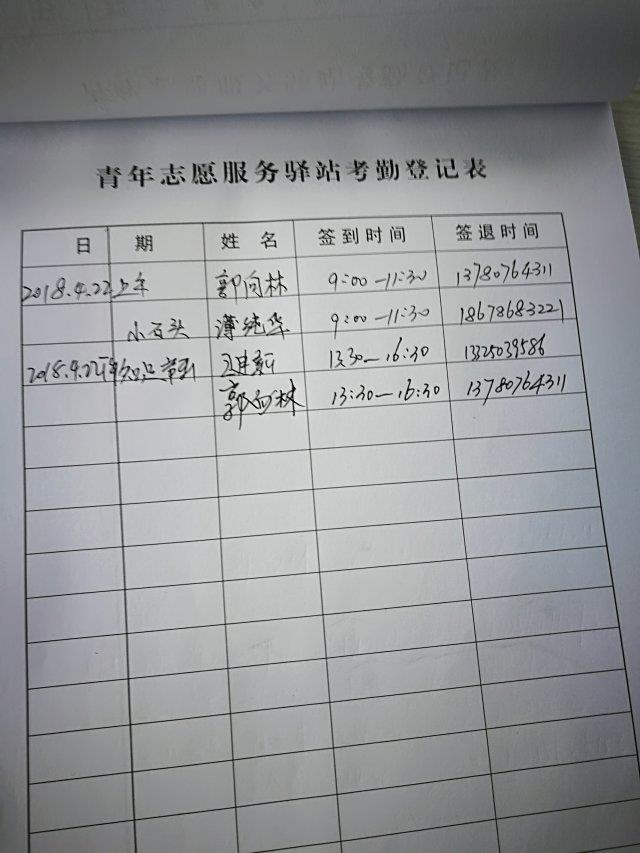 青年志愿服务驿站考勤登记表
日 期 姓 名 签到时间 签退时间
2018.4.22上午 郭向林 9:00-11:30 13780764311
小石头 薄纯华 9:00-11:30 18678683221
2018.4.22下午 13:30-16:30 13325039586
郭向林 13:30-16:30 13780764311